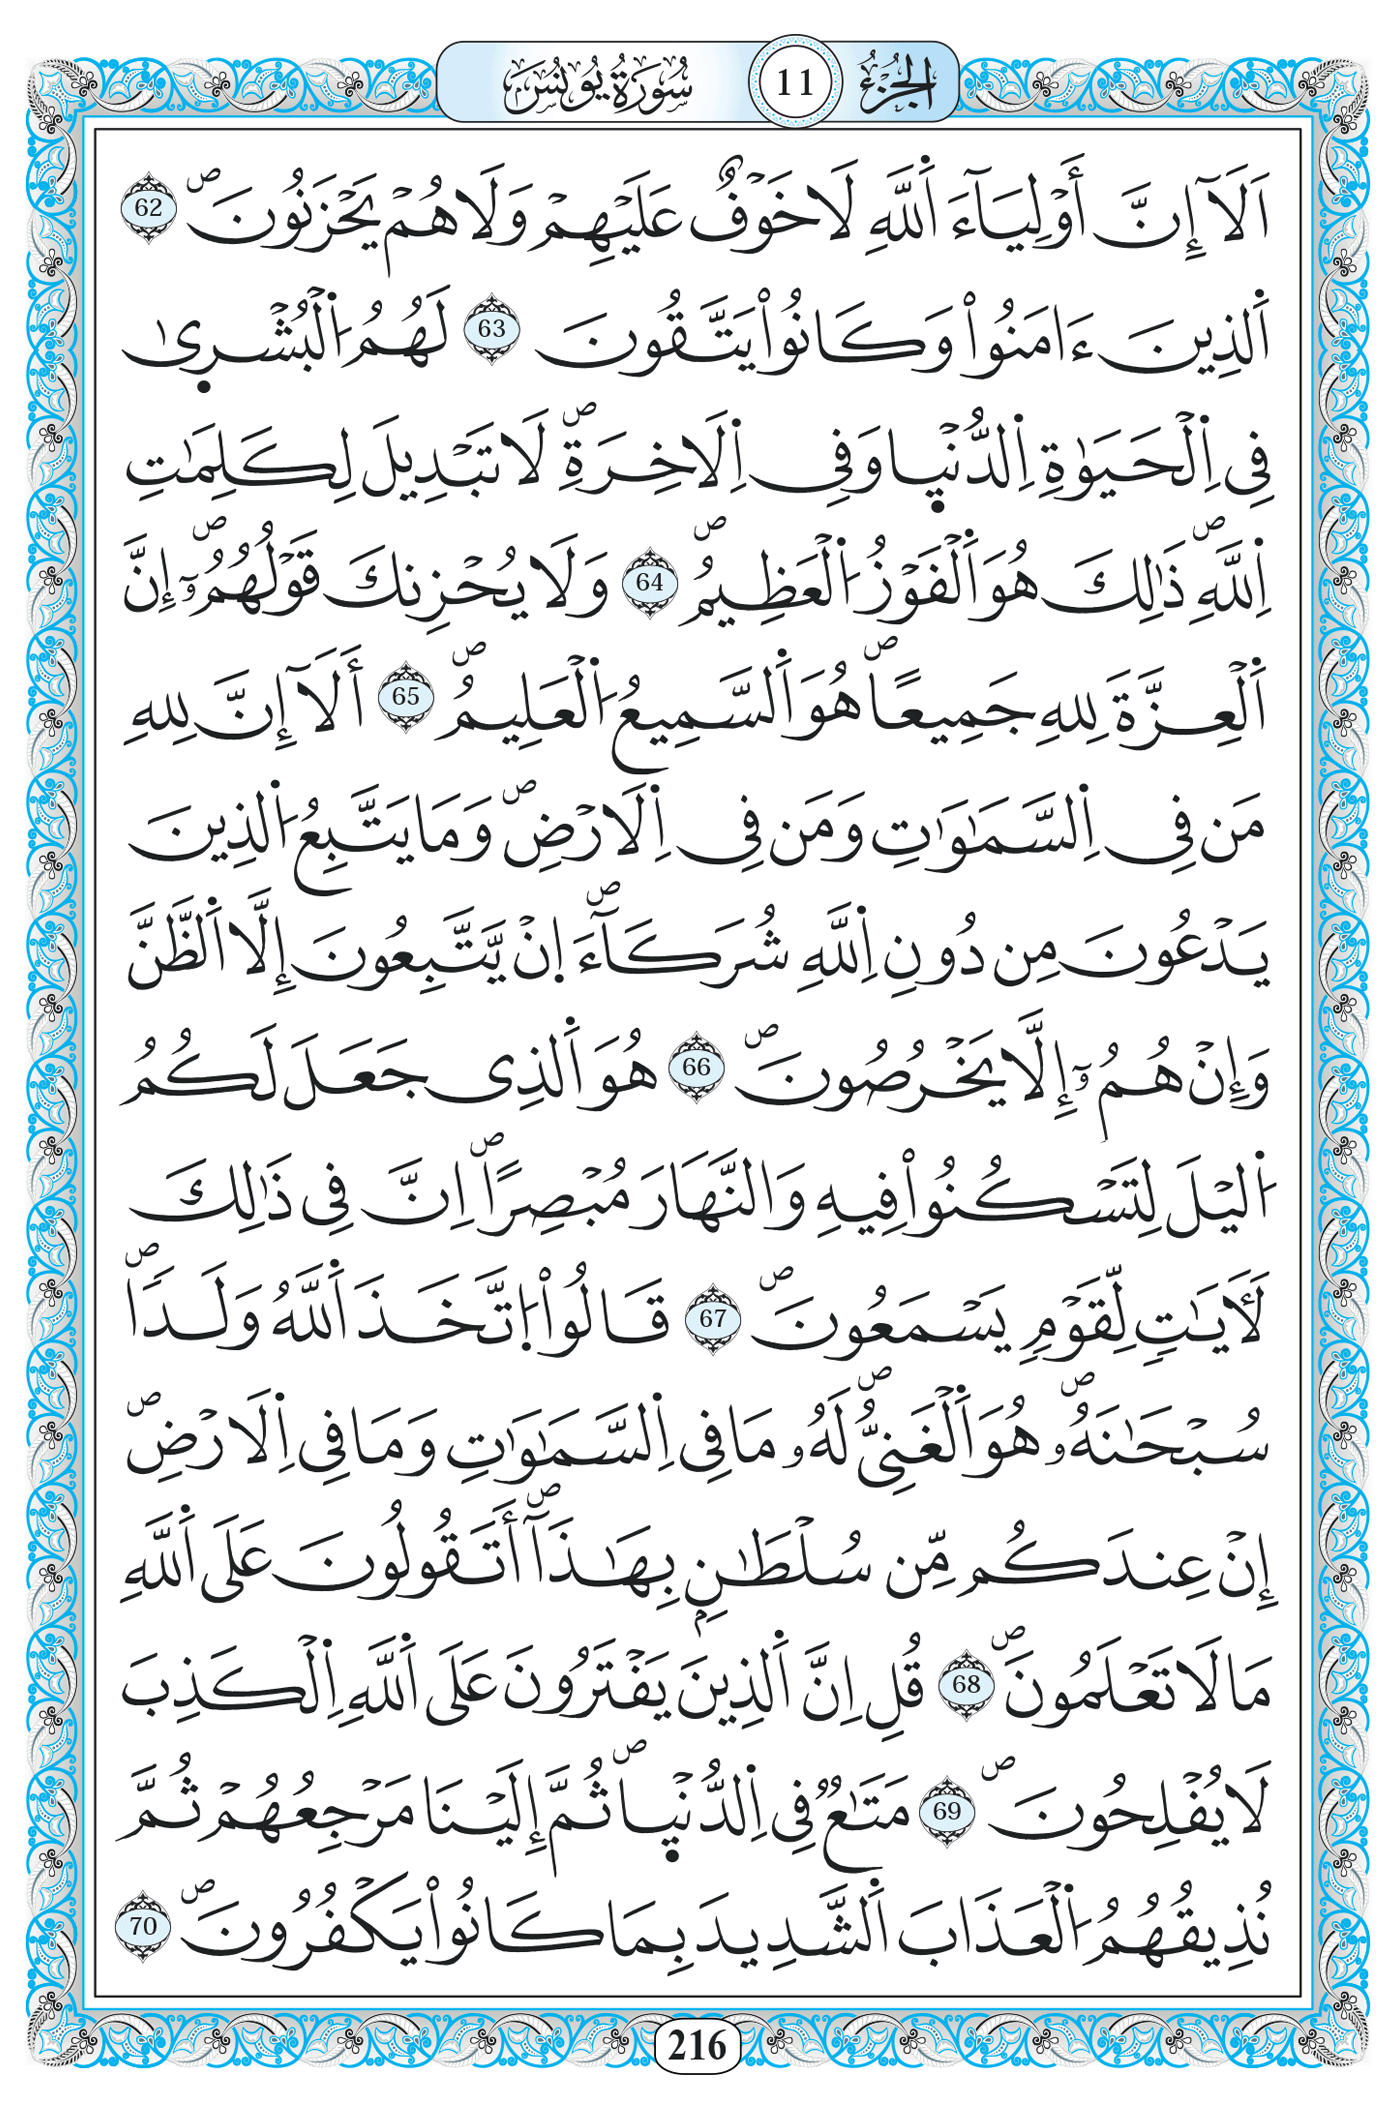 الجزء 11 سورة يونس
اَلَآ إِنَّ أَوْلِيَآءَ اَ۬للَّهِ لَا خَوْفٌ عَلَيْهِمْ وَلَا هُمْ يَحْزَنُونَۖ 62
اَ۬لذِينَ ءَامَنُواْ وَكَانُواْ يَتَّقُونَ 63 لَهُمُ اُ۬لْبُشْر۪ىٰ
فِى اِ۬لْحَيَوٰةِ اِ۬لدُّنْي۪ا وَفِى اِ۬لَاخِرَةِۖ لَا تَبْدِيلَ لِكَلِمَٰتِ
اِ۬للَّهِۖ ذَٰلِكَ هُوَ اَ۬لْفَوْزُ اُ۬لْعَظِيمُۖ 64 وَلَا يُحْزِنكَ قَوْلُهُمُۥٓۖ إِنَّ
اَ۬لْعِزَّةَ لِلهِ جَمِيعاًۖ هُوَ اَ۬لسَّمِيعُ اُ۬لْعَلِيمُۖ 65 أَلَآ إِنَّ لِلهِ
مَن فِى اِ۬لسَّمَٰوَٰتِ وَمَن فِى اِ۬لَارْضِۖ وَمَا يَتَّبِعُ اُ۬لذِينَ
يَدْعُونَ مِن دُونِ اِ۬للَّهِ شُرَكَآءَۖ اِنْ يَّتَّبِعُونَ إِلَّا اَ۬لظَّنَّ
وَإِنْ هُمُۥٓ إِلَّا يَخْرُصُونَۖ 66 هُوَ اَ۬لذِى جَعَلَ لَكُمُ
اُ۬ليْلَ لِتَسْكُنُواْ فِيهِ وَالنَّهَارَ مُبْصِراًۖ اِنَّ فِى ذَٰلِكَ
لَأٓيَٰتٍ لِّقَوْمٍ يَسْمَعُونَۖ 67 قَالُواْ اُ۪تَّخَذَ اَ۬للَّهُ وَلَداًۖ
سُبْحَٰنَهُۥۖ هُوَ اَ۬لْغَنِىُّۖ لَهُۥ مَا فِى اِ۬لسَّمَٰوَٰتِ وَمَا فِى اِ۬لَارْضِۖ
إِنْ عِندَكُم مِّن سُلْطَٰنِۢ بِهَٰذَآۖ أَتَقُولُونَ عَلَى اَ۬للَّهِ
مَا لَا تَعْلَمُونَۖ 68 قُلِ اِنَّ اَ۬لذِينَ يَفْتَرُونَ عَلَى اَ۬للَّهِ اِ۬لْكَذِبَ
لَا يُفْلِحُونَۖ 69 مَتَٰعٌ فِى اِ۬لدُّنْي۪اۖ ثُمَّ إِلَيْنَا مَرْجِعُهُمْ ثُمَّ
نُذِيقُهُمُ اُ۬لْعَذَابَ اَ۬لشَّدِيدَ بِمَا كَانُواْ يَكْفُرُونَۖ 70
216